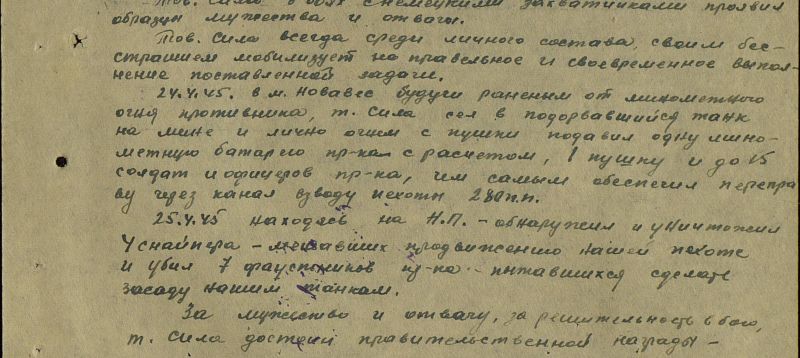 Тов. Сила в боях с немецкими захватчиками проявил
образцы мужества и отваги.
Тов. Сила всегда среди личного состава, своим бес-
страшием мобилизует на правельное и своевременное выпол-
нение поставленной задачи.
24.4.45. в м. Новавес будучи раненым от минометного
огня противника, т. Сила сел в подорвавшийся танк
на мине и лично огнем с пушки подавил одну мино-
метную батарею пр-ка с расчетом, 1 пушку и до 15
солдат и офицеров пр-ка, чем самым обеспечил перепра
ву через канал взводу пехоты 28 п.п.
25.4.45 находясь на Н.П. - обнаружил и уничтожил
4 снайпера - мешавших продвижению нашей пехоте
и убил 7 фаустников пр-ка - пытавшихся сделать
засаду нашим танкам.
За мужество и отвагу, за решительность в бою,
т. Сила достоин правительственной награды -